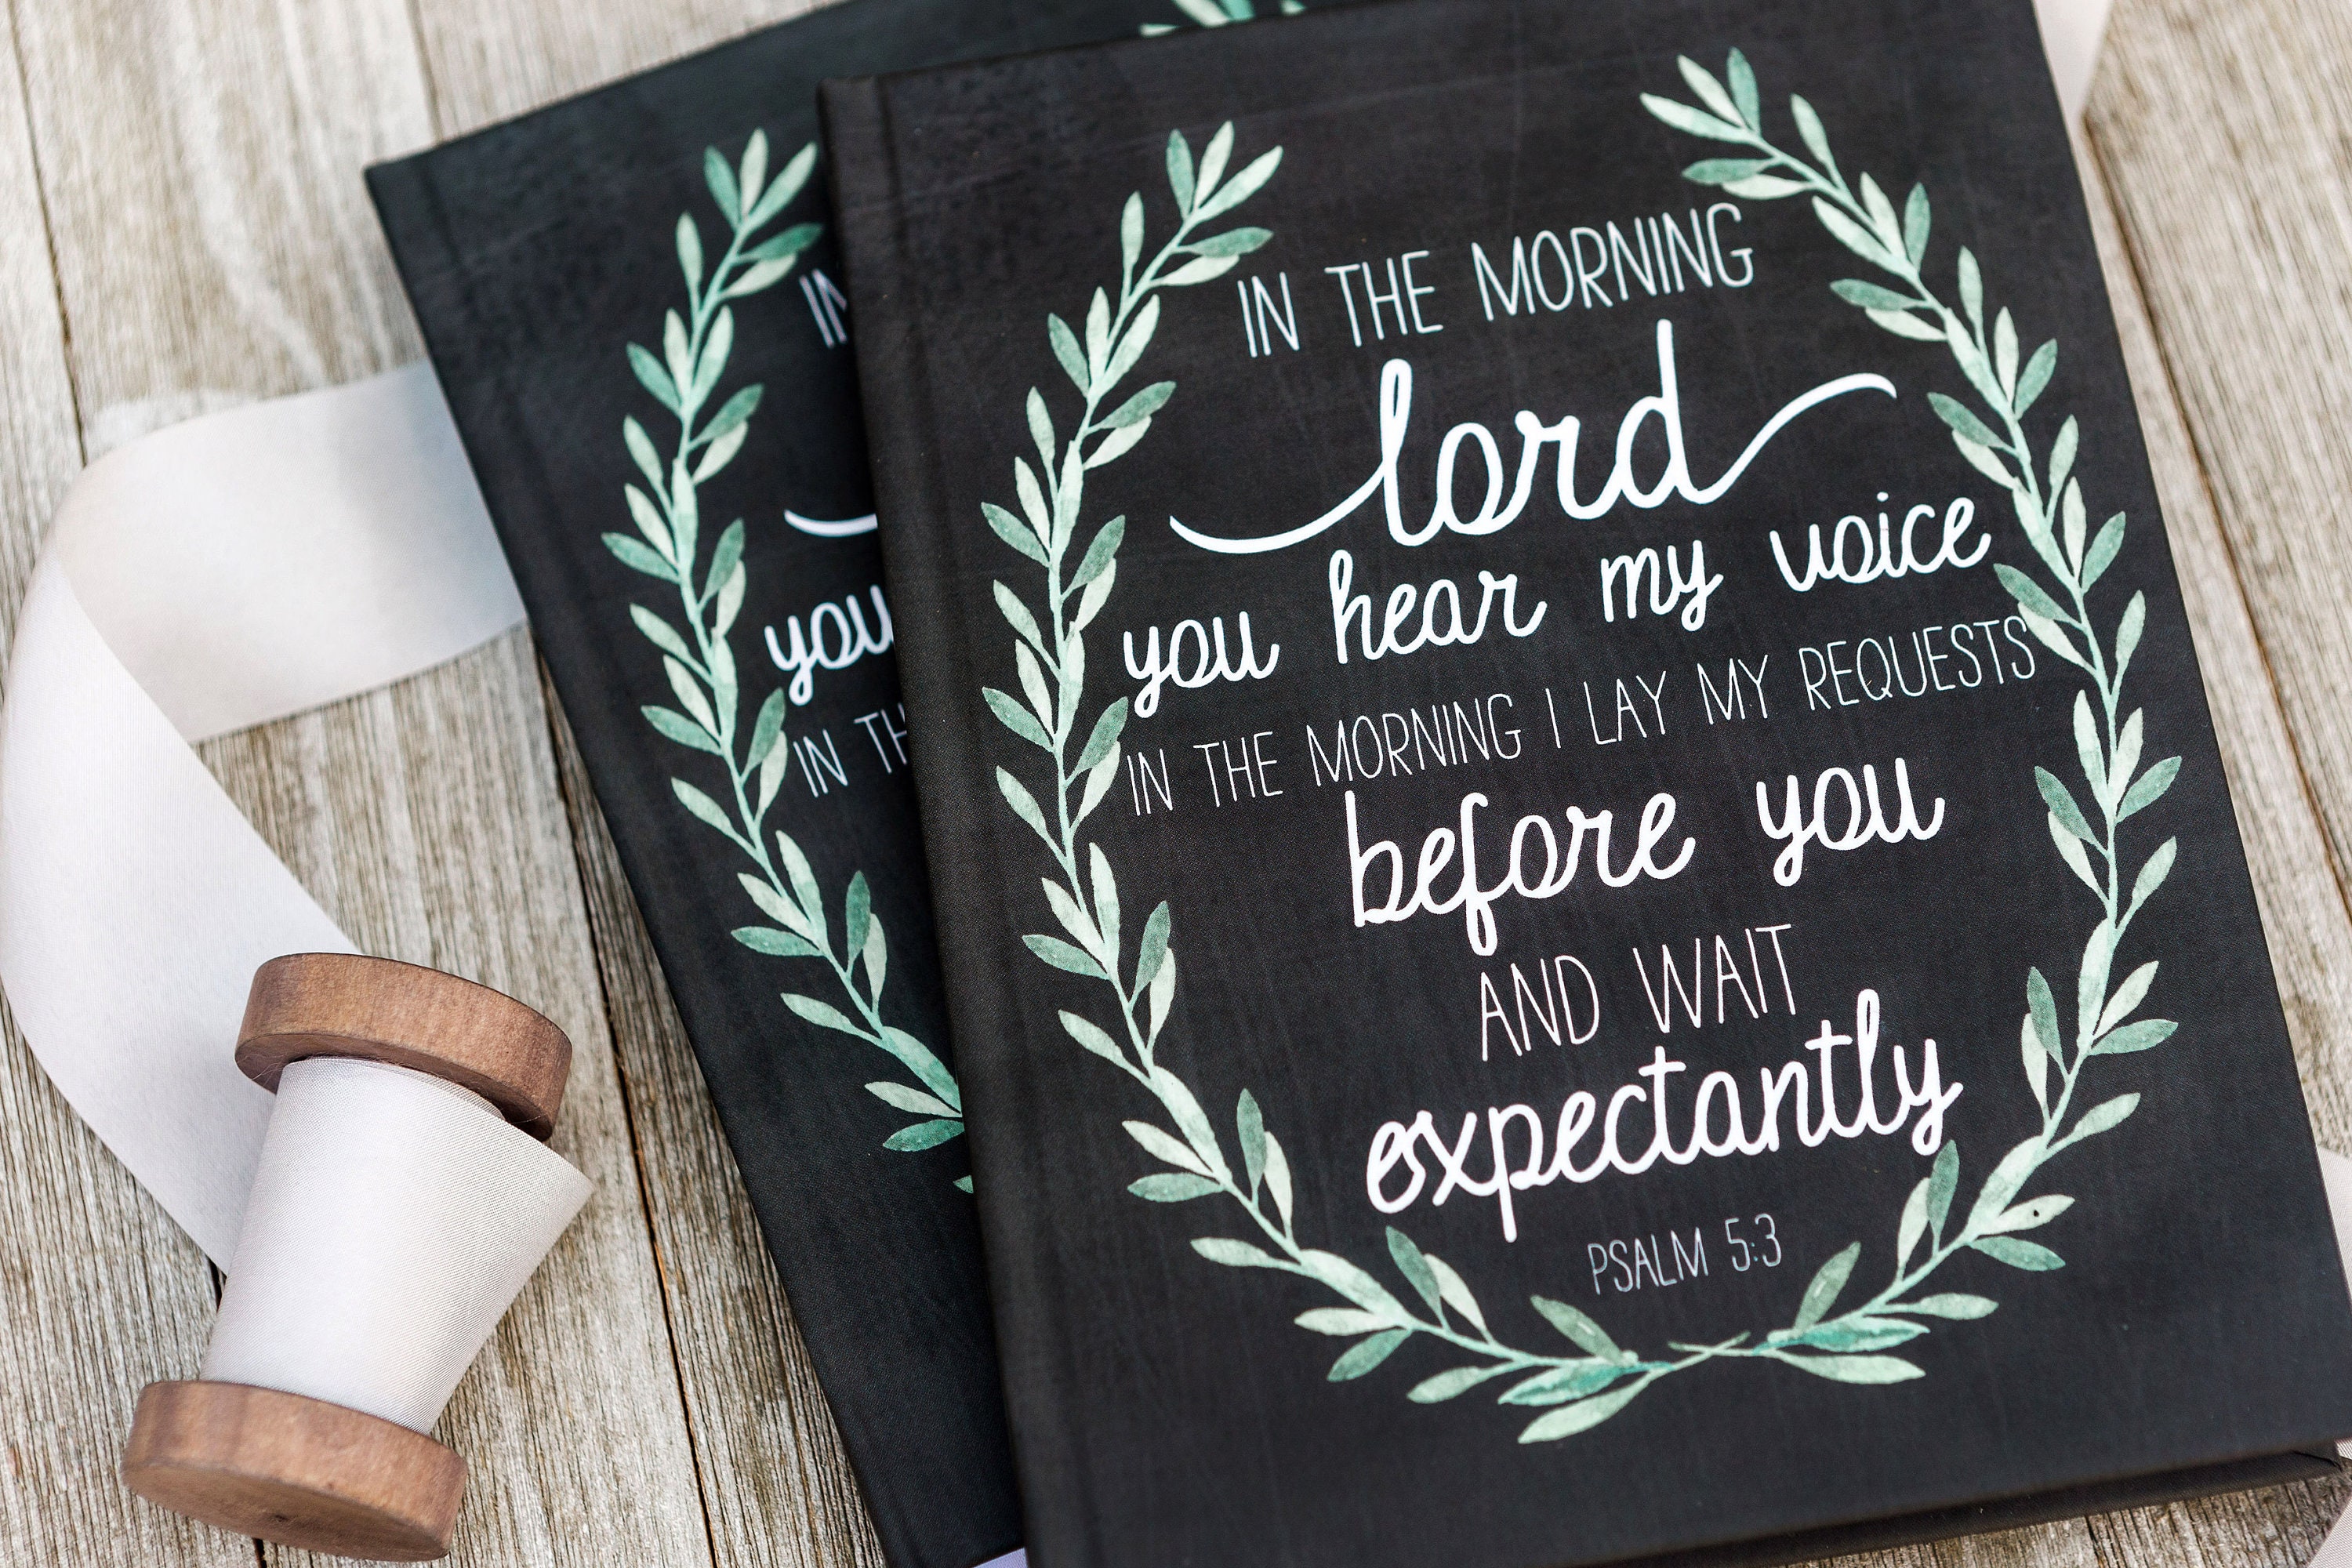 IN THE MORNING
lord
you hear my voice
IN THE MORNING I LAY MY REQUESTS
before you
AND WAIT
expectantly
PSALM 5:3
IN
you
IN TH